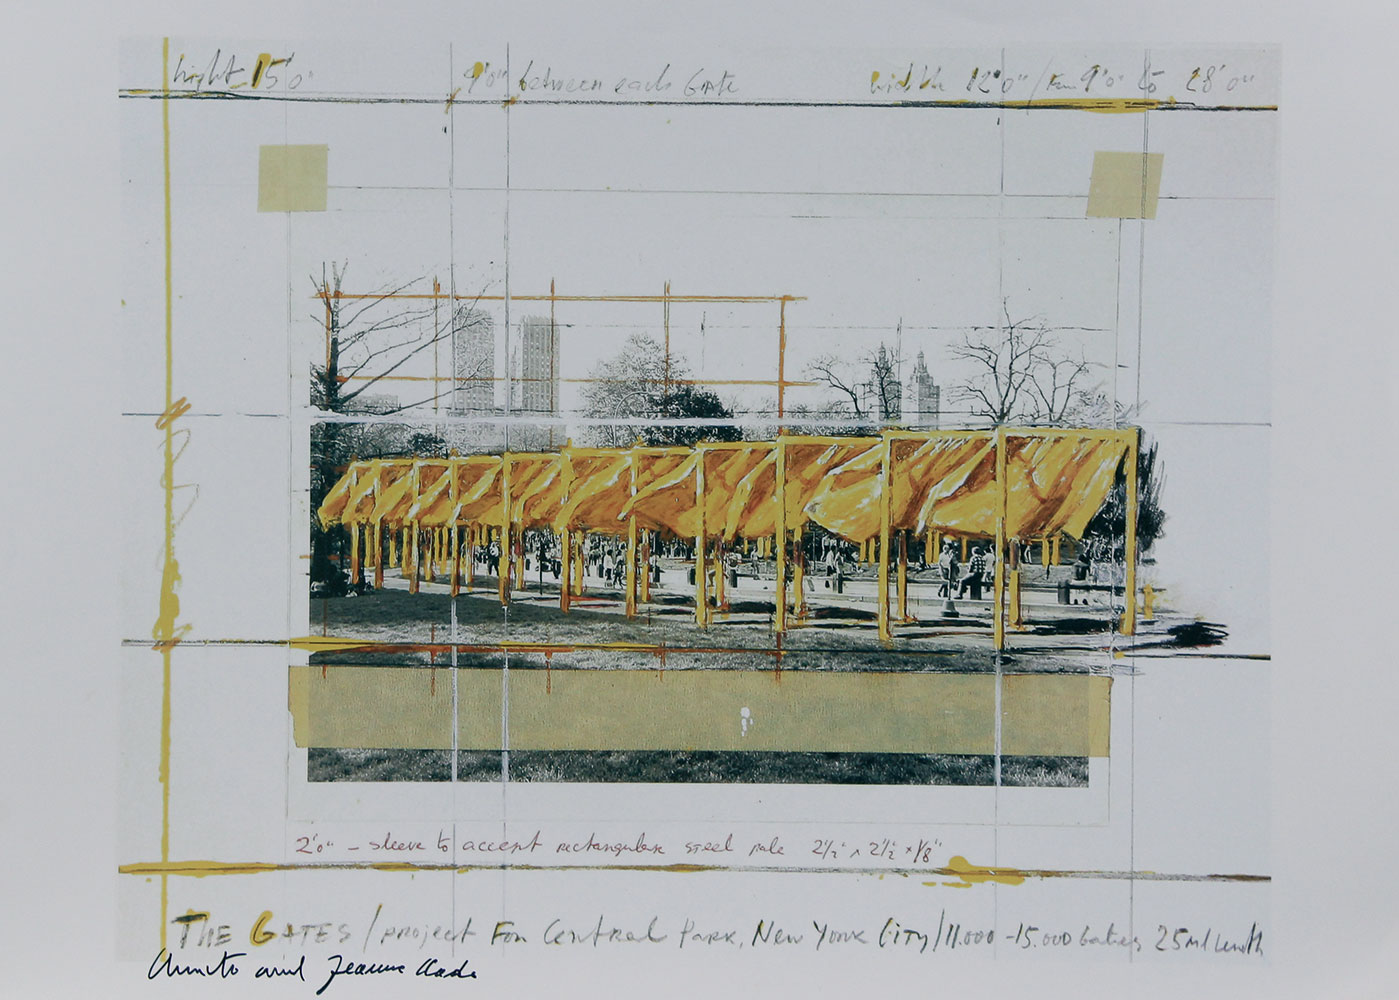 hight 15'0" 9'0" between each GATE width 12'0" / FROM 9'0" to 28'0"
2'0" – sleeve to accept rectangular steel pole 2½" × 2½" × 1/8"
THE GATES / PROJECT FOR CENTRAL PARK, NEW YORK CITY / 11.000 - 15.000 Gates, 25 ml lenth
Christo and Jeanne Claude